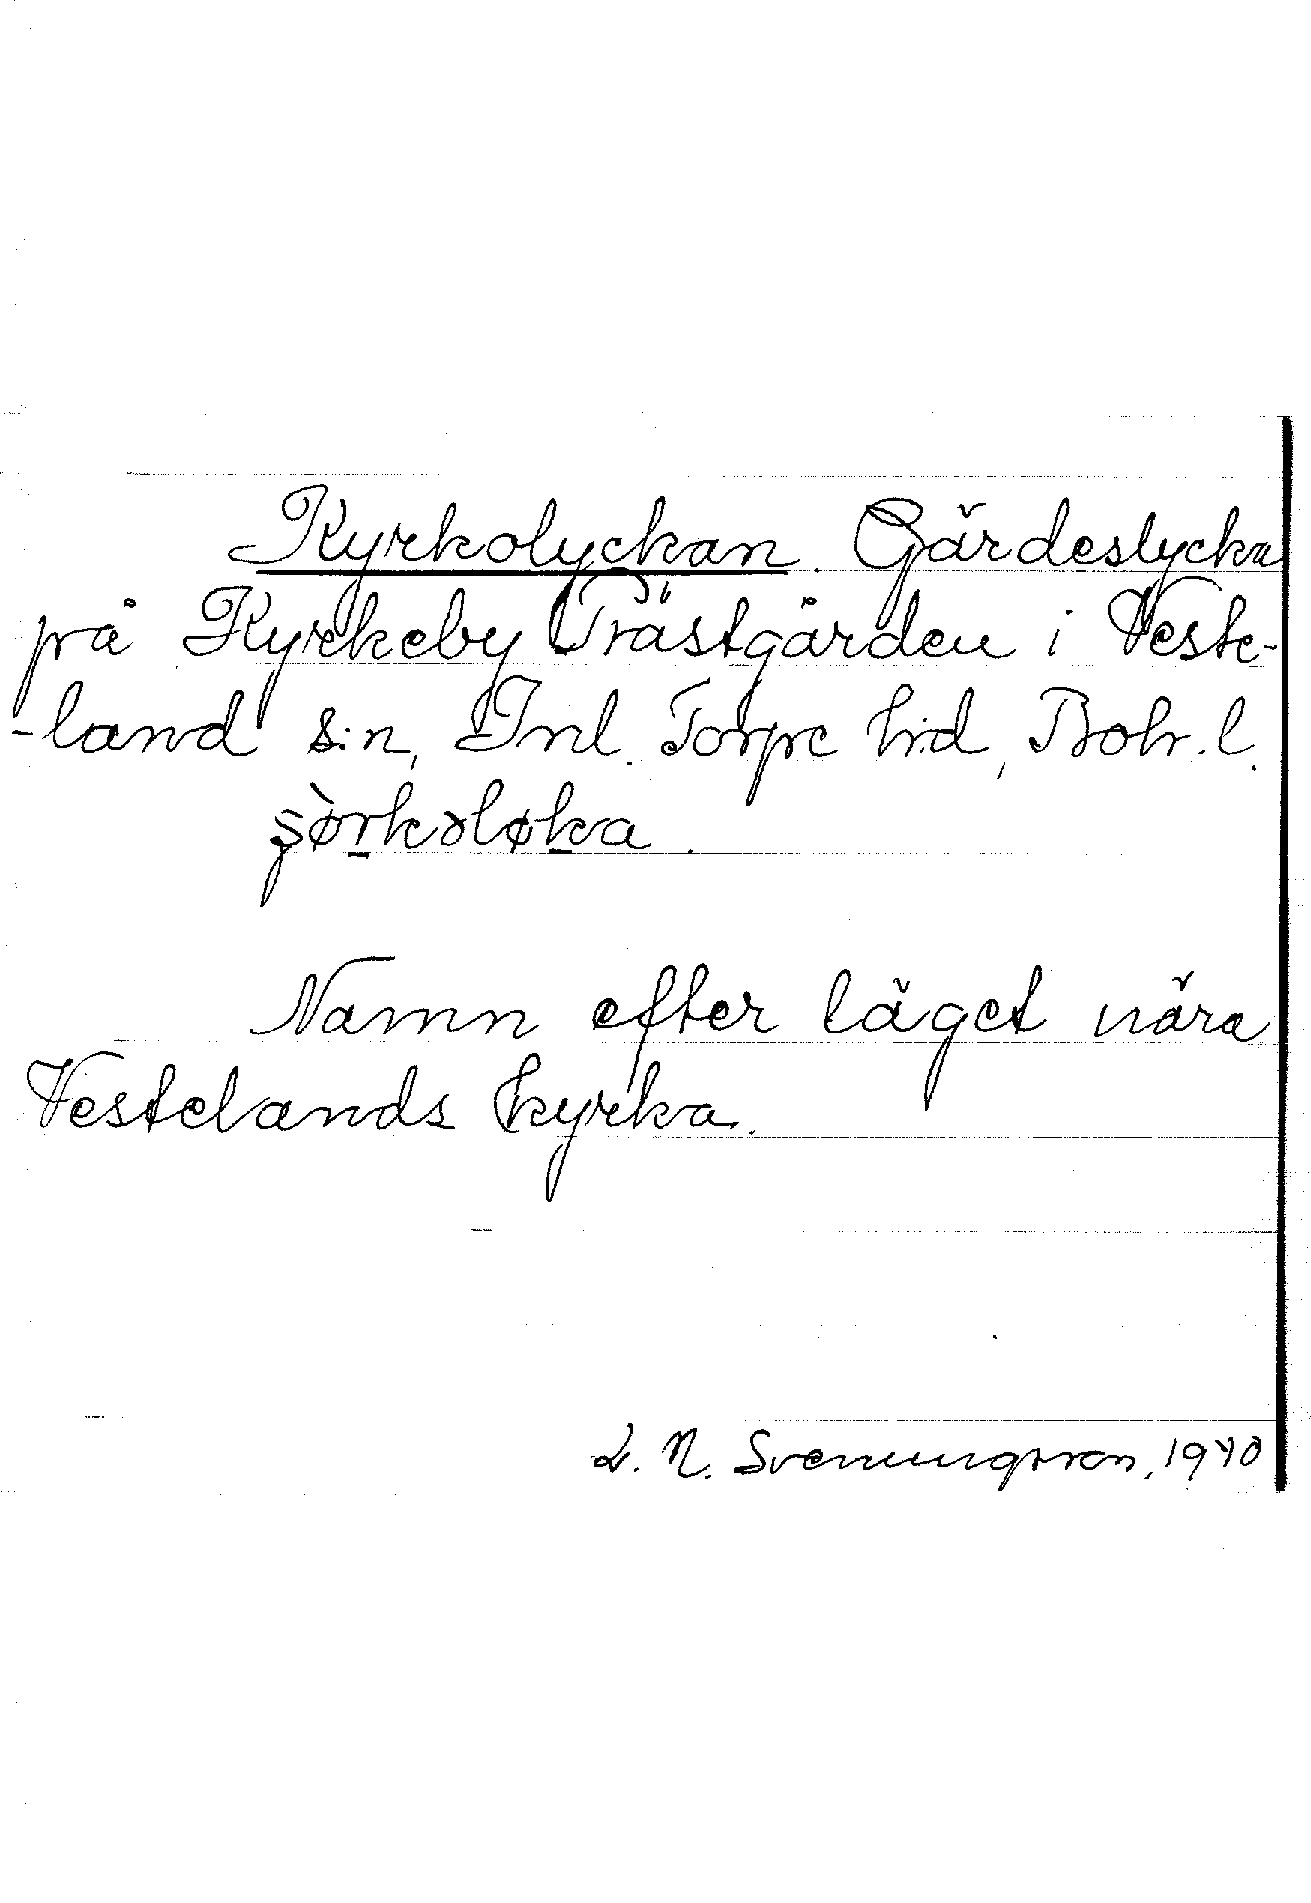 Kyrkolyckan. Gärdeslycka
på Kyrkeby Prästgården i Veste-
-land s:n, Inl. Torpe h:d, Boh. l.
şø̀rkɔløka.
Namn efter läget nära
Vestelands kyrka.
L. N. Svenungsson, 1940